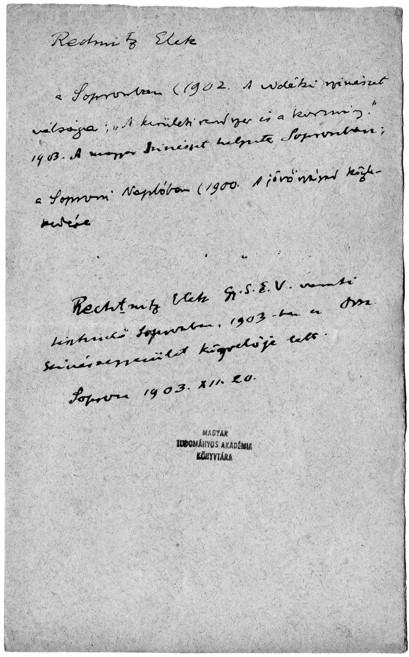 Rechnitz Elek
a Sopronban (1902. A vidéki szinészet
válsága; „A kerületi rendszer és a kormány."
1903. A magyar Szinészet helyzete Sopronban;
a Soproni Naplóban (1900. A jövő század közle-
kedése
Rechnitz Elek Gy.S.E.V. vasuti
tisztviselő Sopronban, 1903-ban a
Szinészegyesület lett.
Sopron 1903. XII. 20.
MAGYAR
TUDOMÁNYOS AKADÉMIA
KÖNYVTÁRA